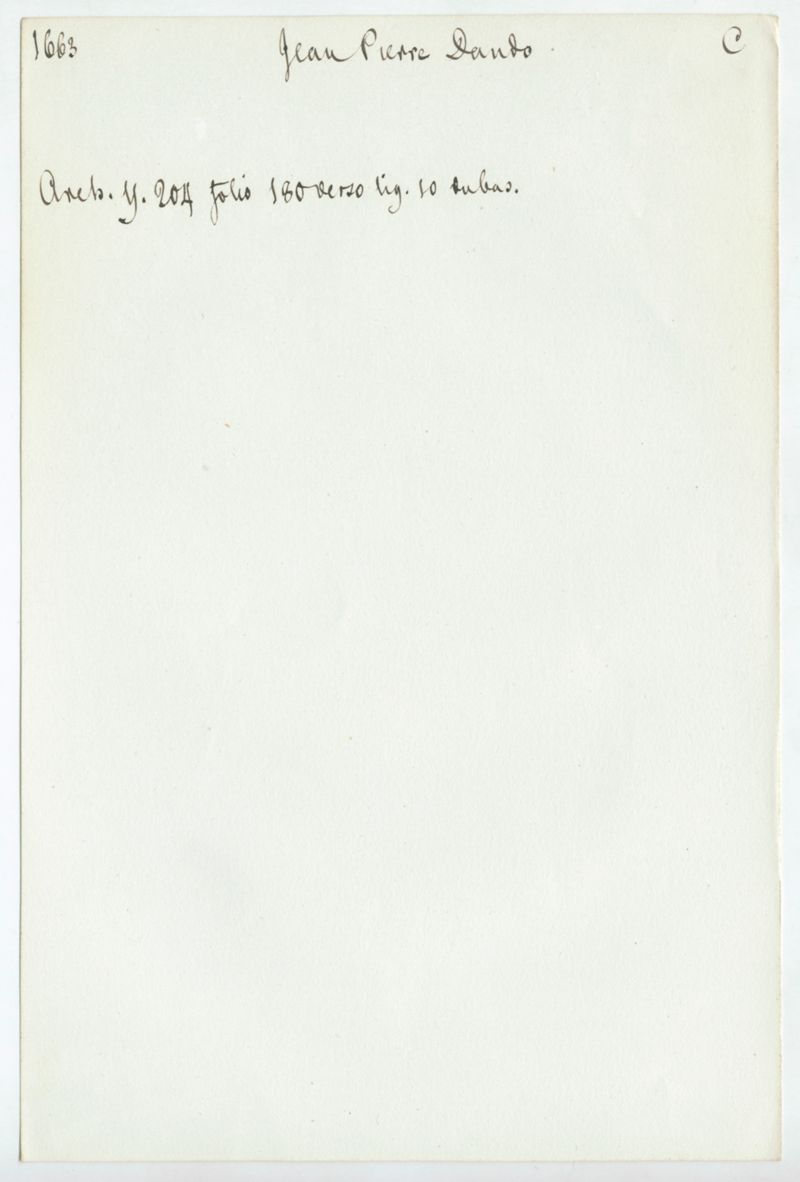 1663 Jean Pierre Dando C
Arch. Y. 204 folio 180 verso lig. 10 du bas.